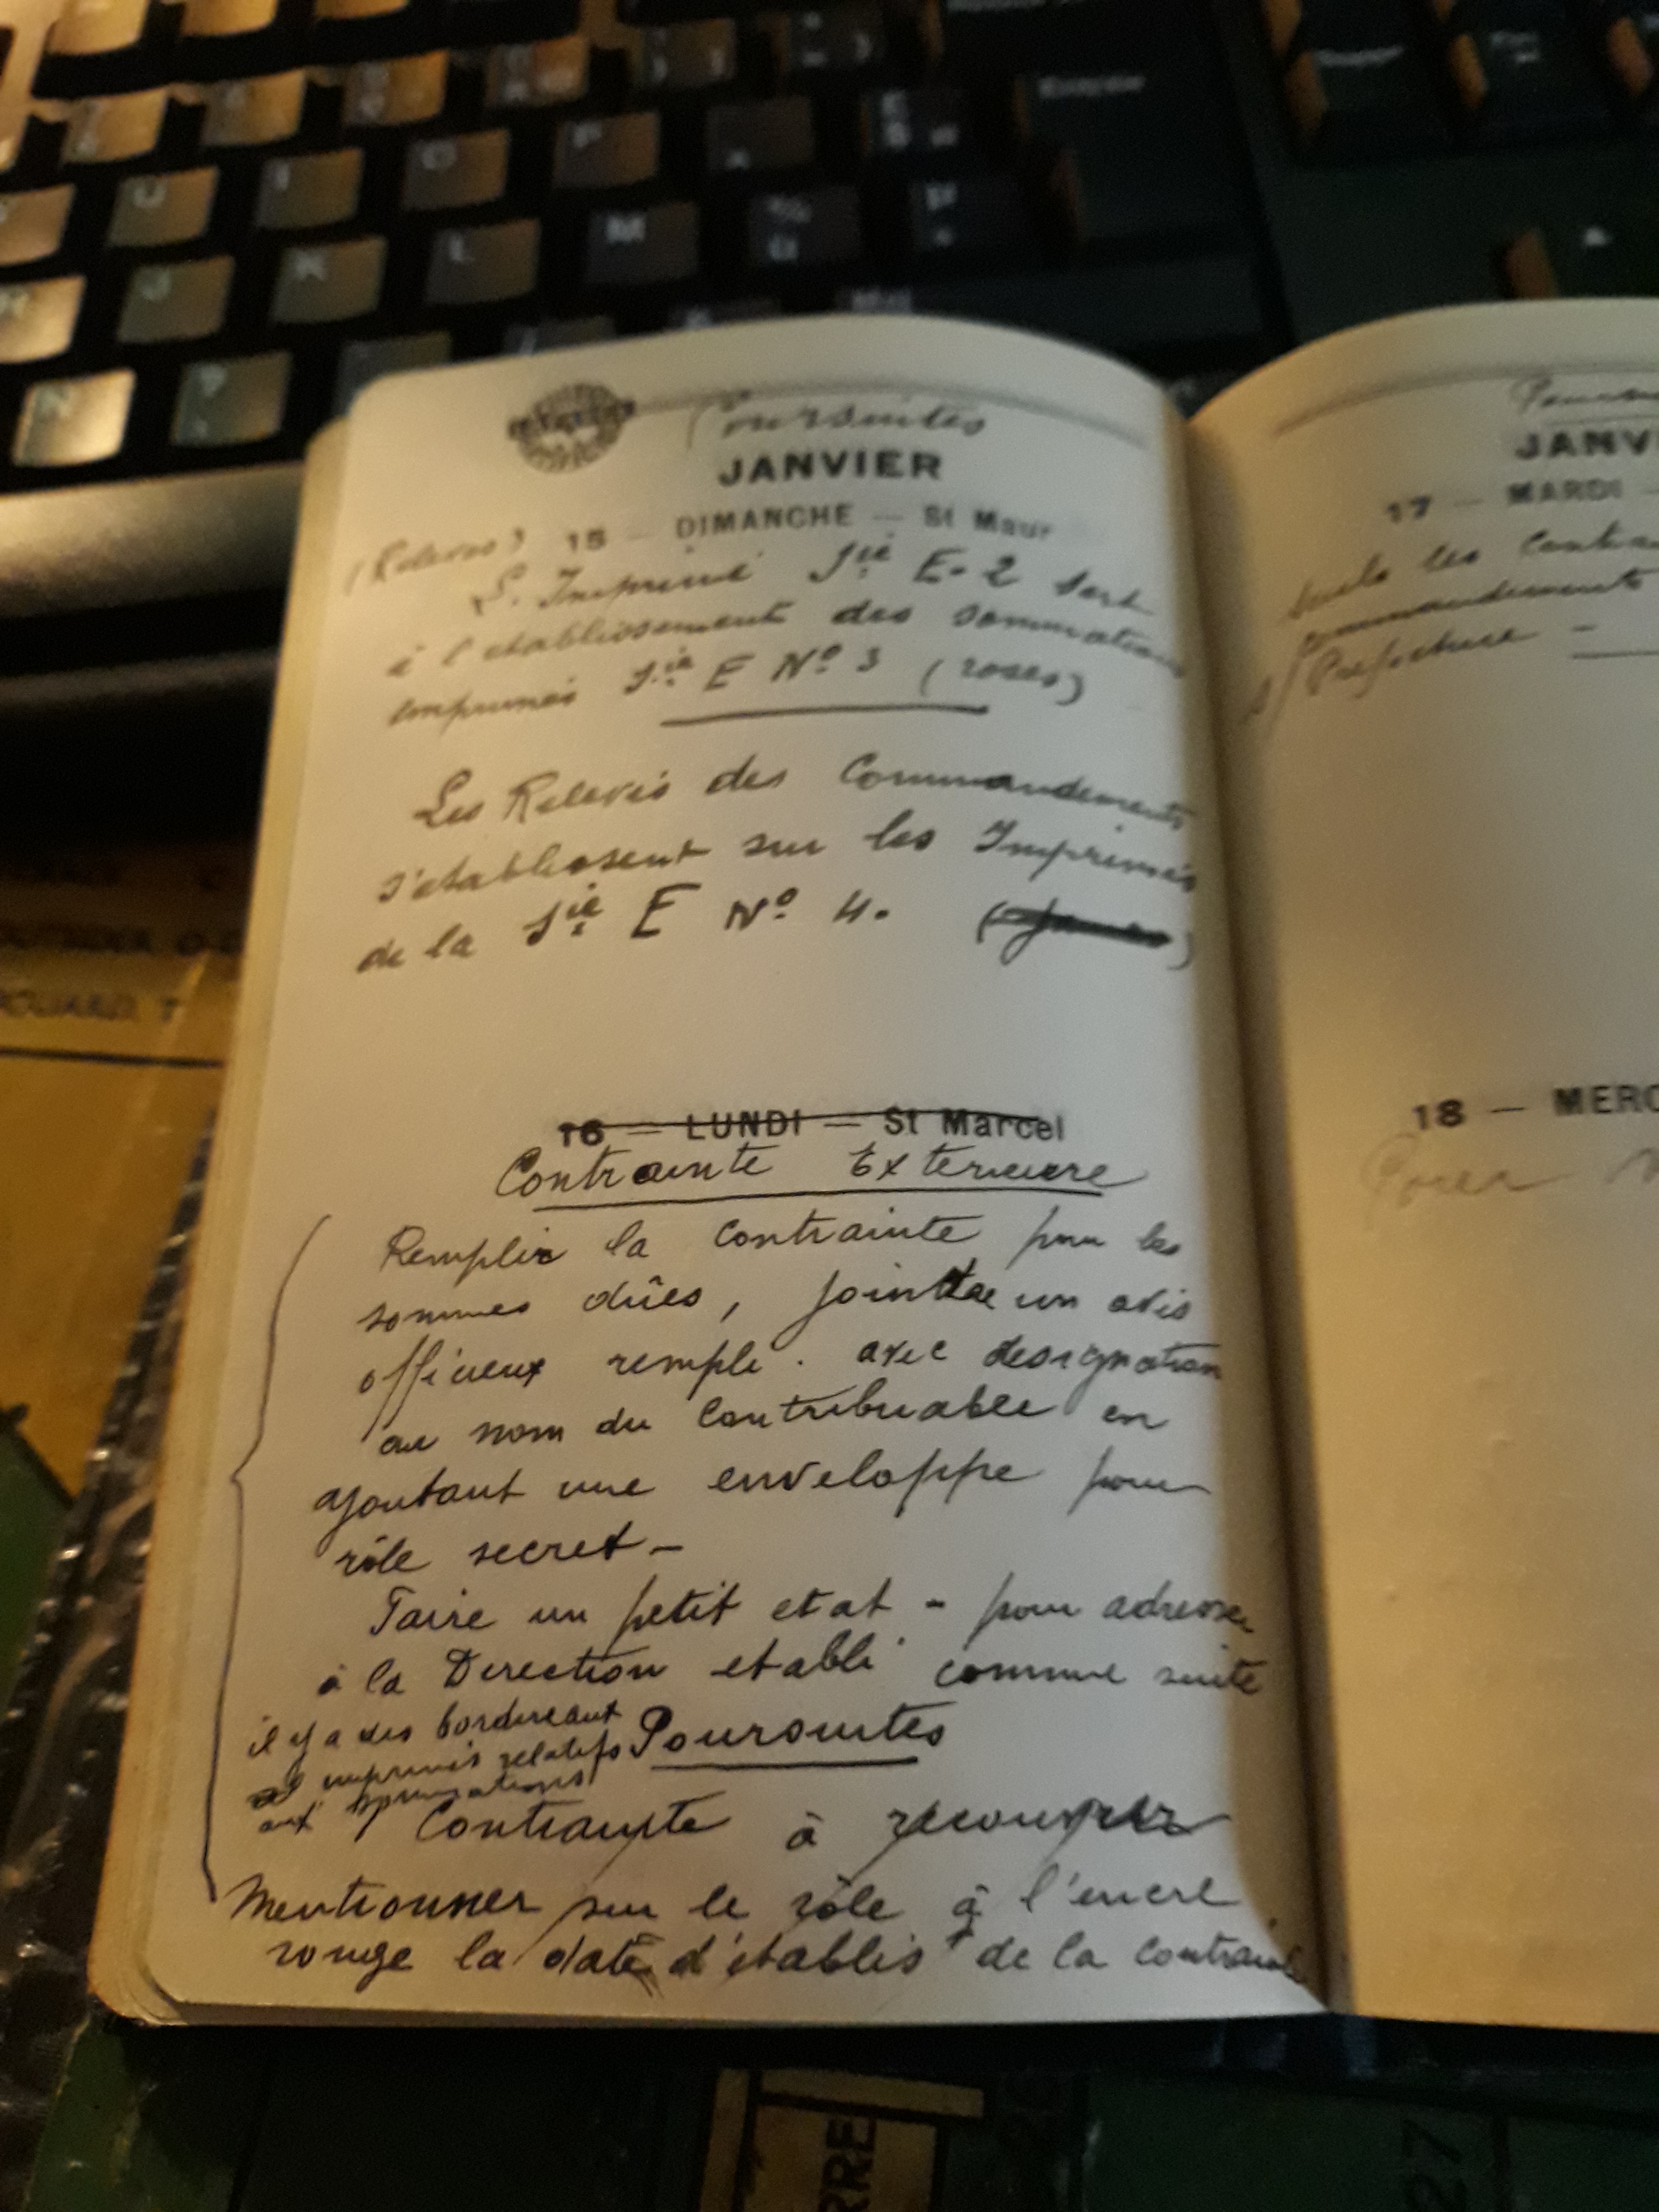 Poursuites
JANVIER
(Relevés) 15 — DIMANCHE — St Maur
L'Imprimé Sie E-2 sert
à l'etablissement des sommations
imprimés Sie E No 3 (roses)
Les Relevés des Commandements
s'etablissent sur les Imprimés
de la Sie E No 4.
16 — LUNDI — St Marcel
Contrainte Exterieure
Remplir la contrainte pour les
sommes dûes, joindre un avis
officieux rempli. avec designation
au nom du Contribuable en
ajoutant une enveloppe pour
rôle secret —
Faire un petit etat - pour adresser
à la Direction etabli comme suite
il y a des bordereaux
imprimés relatifs
aux
Poursuites
Contrainte à recouvrer
Mentionner sur le rôle à l'encre
rouge la date d'établist de la contrainte
JANV
17 — MARDI —
les Contra
Commandements
Prefecture —
18 — MERC
Pour